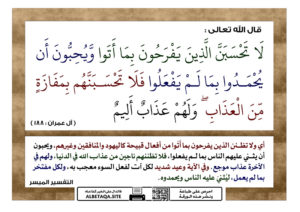 قال الله تعالى :
لَا تَحْسَبَنَّ الَّذِينَ يَفْرَحُونَ بِمَا أَتَوا وَّيُحِبُّونَ أَن
يُحْمَدُوا بِمَا لَمْ يَفْعَلُوا فَلَا تَحْسَبَنَّهُم بِمَفَازَةٍ
مِّنَ الْعَذَابِ ۖ وَلَهُمْ عَذَابٌ أَلِيمٌ
( آل عمران : ١٨٨ )
أي ولا تظنن الذين يفرحون بما أتوا من أفعال قبيحة كاليهود والمنافقين وغيرهم، ويحبون
أن يثني عليهم الناس بما لم يفعلوا، فلا تظننهم ناجين من عذاب الله في الدنيا، ولهم في
الآخرة عذاب موجع. وفي الآية وعيد شديد لكل آت لفعل السوء معجب به، ولكل مفتخر
بما لم يعمل، ليُثني عليه الناس ويحمدوه.
التفسير الميسر
ALBETAQA.SITE